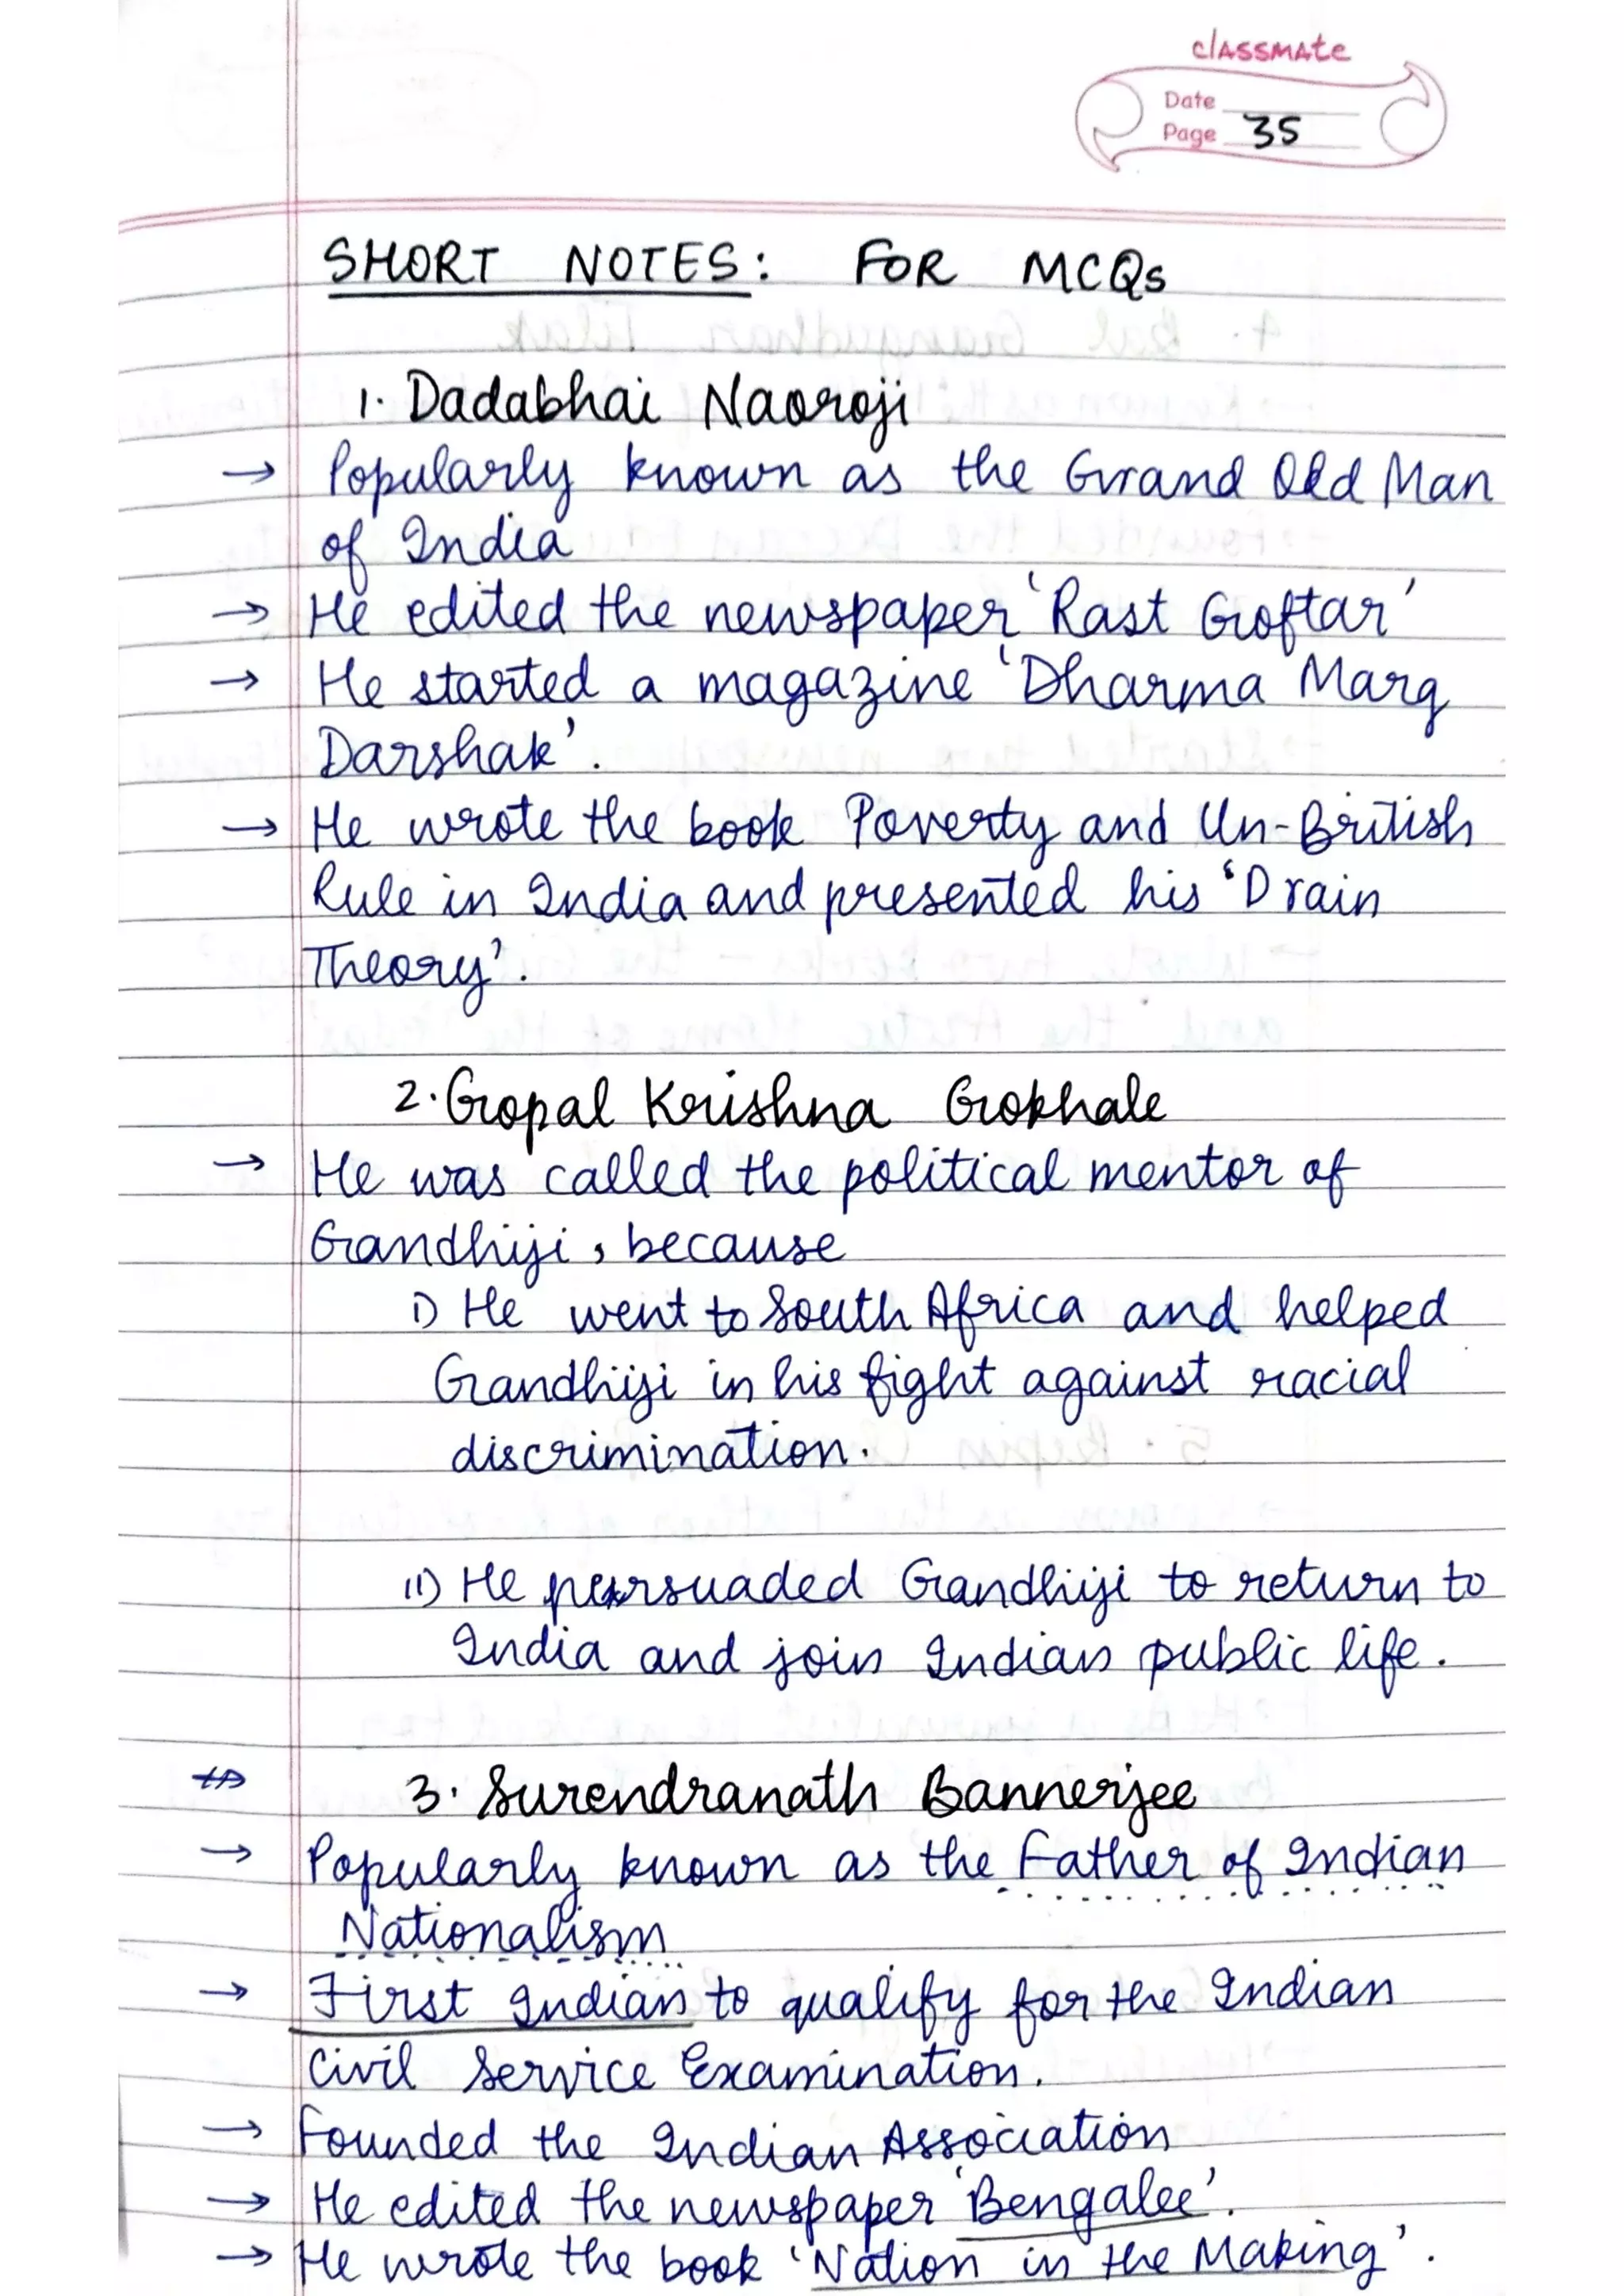 classmate
Date
Page 35
SHORT NOTES: FOR MCQs
1. Dadabhai Naoroji
→ Popularly known as the Grand Old Man
of India
→ He edited the newspaper 'Rast Goftar'
→ He started a magazine 'Dharma Marg
Darshak'.
→ He wrote the book Poverty and Un-British
Rule in India and presented his 'Drain
Theory'.
2. Gopal Krishna Gokhale
→ He was called the political mentor of
Gandhiji, because
i) He went to South Africa and helped
Gandhiji in his fight against racial
discrimination.
ii) He persuaded Gandhiji to return to
India and join Indian public life.
3. Surendranath Bannerjee
→ Popularly known as the Father of Indian
Nationalism
→ First Indian to qualify for the Indian
Civil Service Examination.
→ Founded the Indian Association
→ He edited the newspaper 'Bengalee'.
→ He wrote the book 'Nation in the Making'.